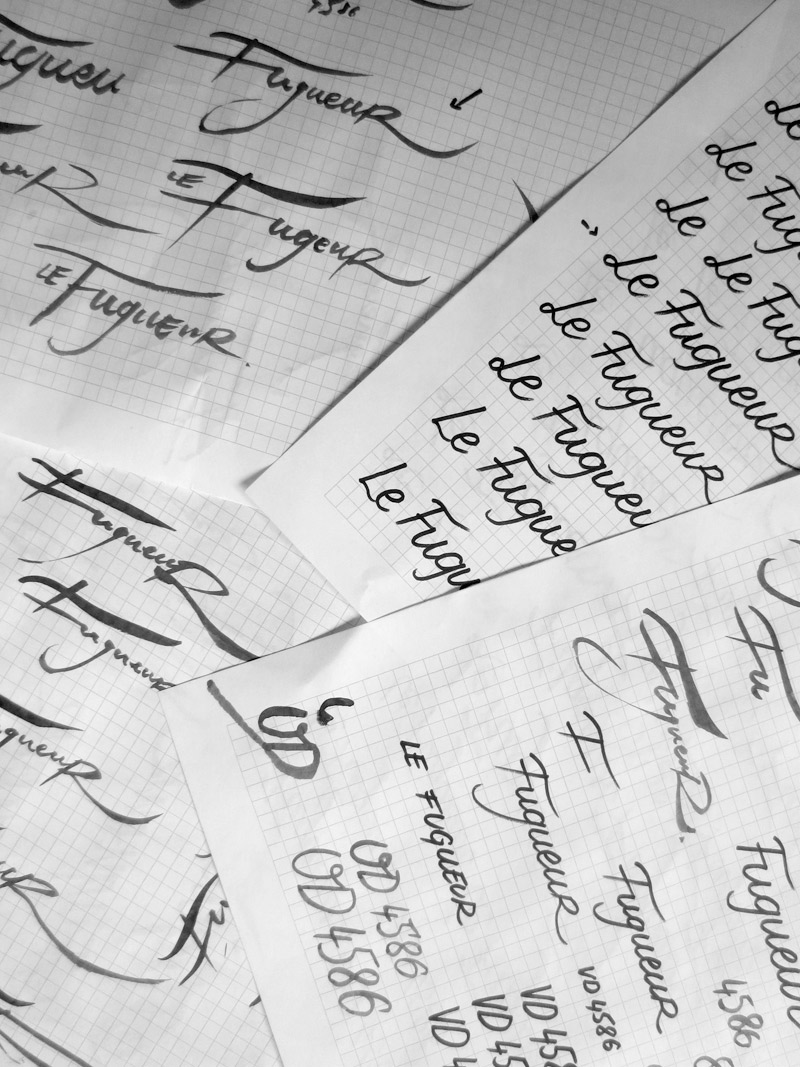 4586
Fugueu
FugueuR
LE FugeuR
LE FuguEuR.
Le
Le Fug
Le
Le Fugue
Le FugueuR
Le FugueuR
Le Fugueu
Le Fugue
Le Fugu
FugueuR
Fugueu
gueuR
VD
LE FUGUEUR
FugueuR
F
FugueuR.
Fu
FugueuR
FugueuR
VD 4586
VD 4586
VD 4586
VD 458
VD 45
VD 4
4586